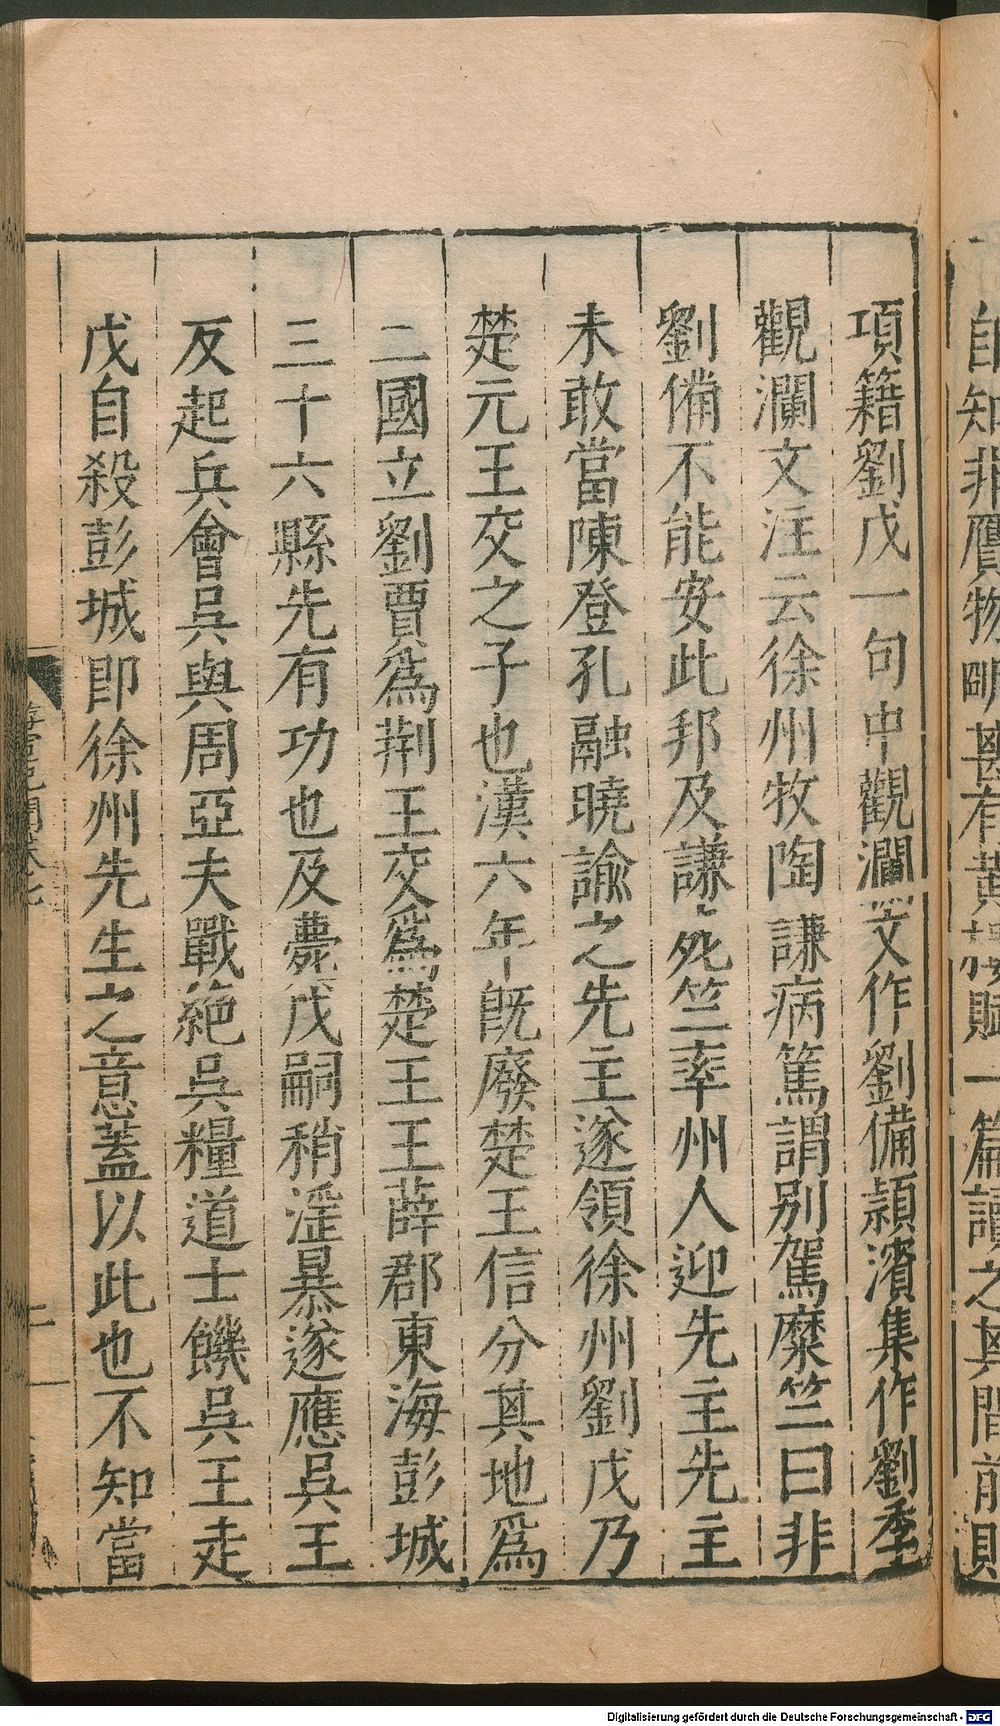 自知非贗物明甚有黃樓賦一篇讀之其間前則
項籍劉戊一句中觀瀾文作劉備潁濱集作劉季
觀瀾文注云徐州牧陶謙病篤謂別駕糜竺曰非
劉備不能安此邦及謙〻死竺率州人迎先主先主
未敢當陳登孔融曉諭之先主遂領徐州劉戊乃
楚元王交之子也漢六年既廢楚王信分其地爲
二國立劉賈爲荆王交爲楚王王薛郡東海彭城
三十六縣先有功也及薨戊嗣稍淫暴遂應吳王
反起兵會吳與周亞夫戰絶吳糧道士饑吳王走
戊自殺彭城卽徐州先生之意蓋以此也不知當
游宦紀聞卷七
Digitalisierung gefördert durch die Deutsche Forschungsgemeinschaft - DFG